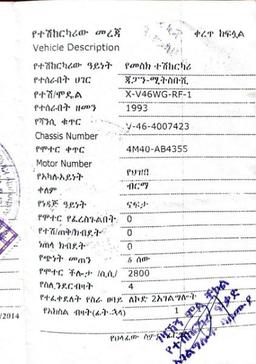 የተሽከርካሪው መረጃ ቀረጥ ከፍሏል
Vehicle Description
የተሽከርካሪው ዓይነት የመስክ ተሽከርካሪ
የተሰራበት ሀገር ጃፖን-ሚትስቡሺ
የተሽ/ሞዴል X-V46WG-RF-1
የተሰራበት ዘመን 1993
የሻንሲ ቁጥር V-46-4007423
Chassis Number
የሞተር ቁጥር 4M40-AB4355
Motor Number
የአካሉ አይነት የህዝብ
ቀለም ብርማ
የነዳጅ ዓይነት ናፍታ
የሞተር የፈረስጉልበት 0
የተሽ/ጠቅ/ክብደት 0
ነጠላ ክብደት 0
የጭነት መጠን 6 ሰው
የሞተር ችሎታ /ሲሲ/ 2800
የሲሊንደር ብዛት 4
የተፈቀደለት የስራ ፀባይ ለኮድ 2 አገልግሎት
የአክስል ብዛት(ፊት-ኋላ) 1
/2014